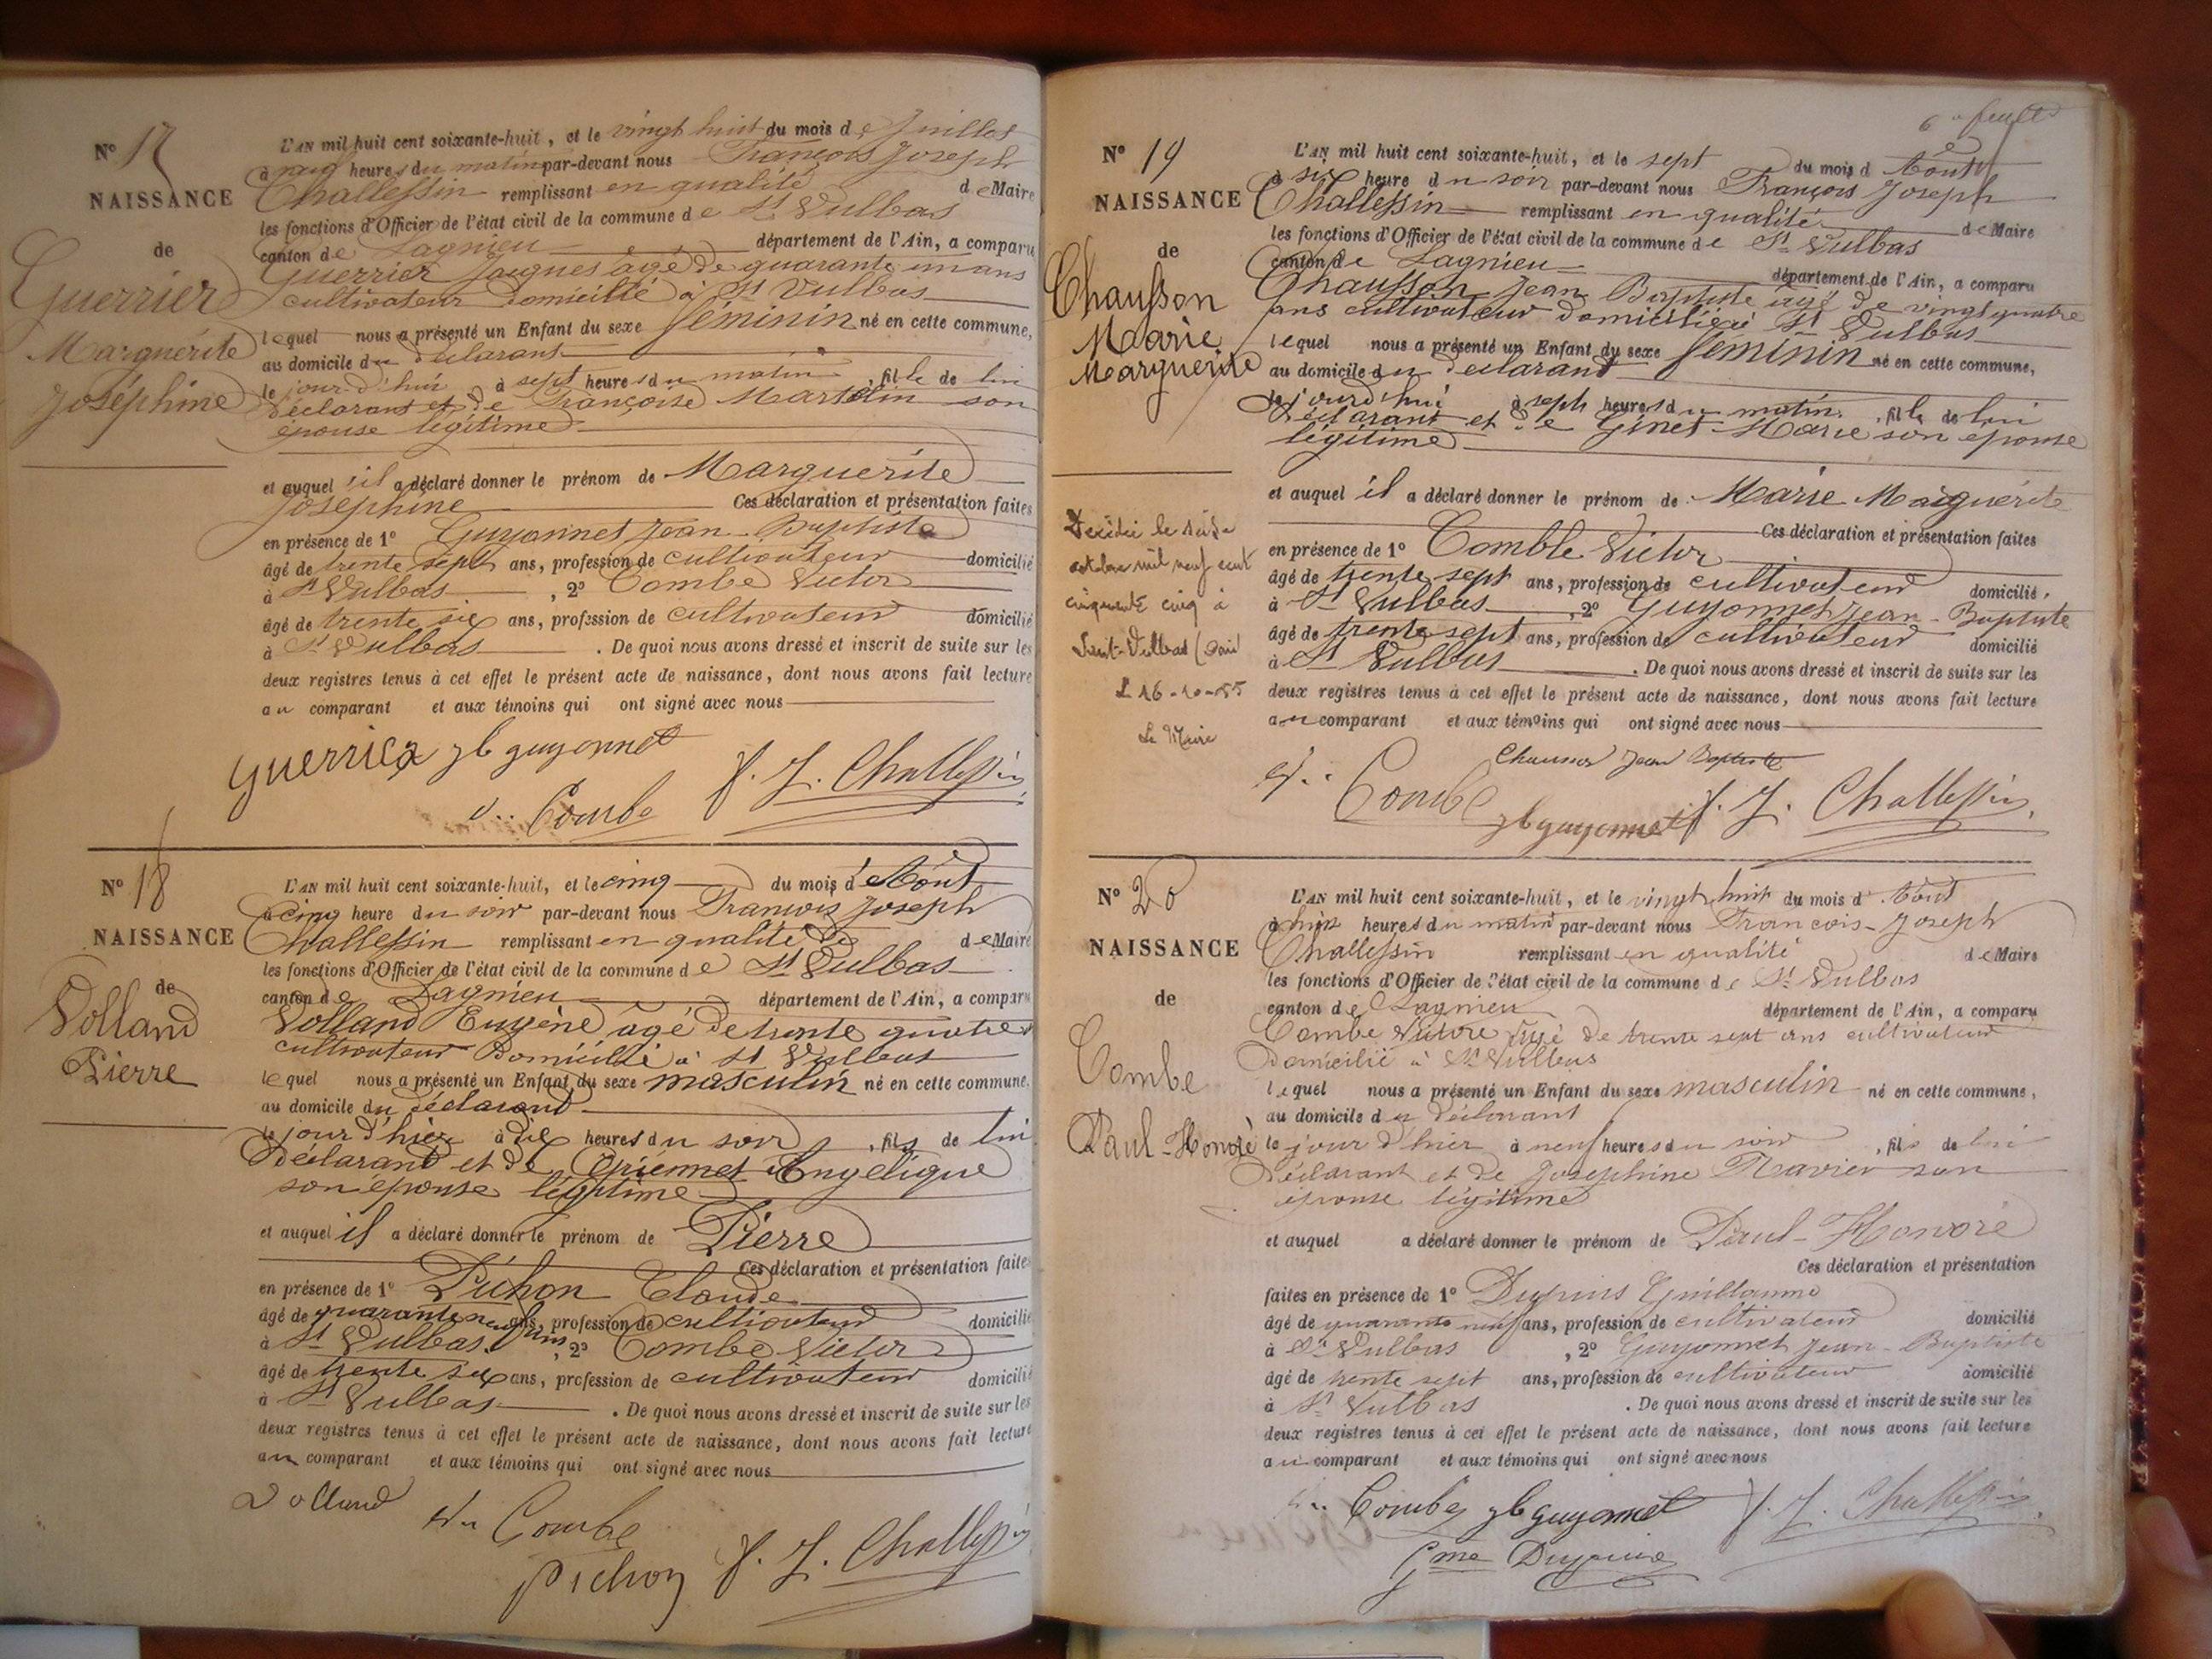 N° 17
NAISSANCE
de
Guerrier
Marguérite
Joséphine
L'AN mil huit cent soixante-huit, et le vingt huit du mois de Juillet
à neuf heures du matin par-devant nous François Joseph
Challessin remplissant en qualité de Maire
les fonctions d'Officier de l'état civil de la commune de St Vulbas
canton de Lagnieu département de l'Ain, a comparu
Guerrier Jacques âgé de quarante un ans
cultivateur domicilié à St Vulbas
lequel nous a présenté un Enfant du sexe féminin né en cette commune,
au domicile du déclarant
le jour d'hui à sept heures du matin, fille de lui
déclarant et de Françoise Martelin son
épouse légitime
et auquel il a déclaré donner le prénom de Marguerite
Joséphine Ces déclaration et présentation faites
en présence de 1° Guyonnet Jean Baptiste
âgé de trente sept ans, profession de cultivateur domicilié
à St Vulbas, 2° Combe Victor
âgé de trente six ans, profession de cultivateur domicilié
à St Vulbas. De quoi nous avons dressé et inscrit de suite sur les
deux registres tenus à cet effet le présent acte de naissance, dont nous avons fait lecture
au comparant et aux témoins qui ont signé avec nous
Guerrier jb guyonnet
Combe F. J. Challessin
N° 18
NAISSANCE
de
Volland
Pierre
L'AN mil huit cent soixante-huit, et le cinq du mois d'Août
à cinq heure du soir par-devant nous François Joseph
Challessin remplissant en qualité de de Maire
les fonctions d'Officier de l'état civil de la commune de St Vulbas
canton de Lagnieu département de l'Ain, a comparu
Volland Eugène âgé de trente quatre
cultivateur domicilié à St Vulbas
lequel nous a présenté un Enfant du sexe masculin né en cette commune,
au domicile du déclarant
le jour d'hier à dix heures du soir, fils de lui
déclarant et de Angélique
son épouse légitime
et auquel il a déclaré donner le prénom de Pierre
Ces déclaration et présentation faites
en présence de 1° Pichon Claude
âgé de quarante neuf ans, profession de cultivateur domicilié
à St Vulbas, 2° Combe Victor
âgé de trente six ans, profession de cultivateur domicilié
à St Vulbas. De quoi nous avons dressé et inscrit de suite sur les
deux registres tenus à cet effet le présent acte de naissance, dont nous avons fait lecture
au comparant et aux témoins qui ont signé avec nous
Volland Combe
Pichon F. J. Challessin
6e feuillet
N° 19
NAISSANCE
de
Chausson
Marie
Marguerite
L'AN mil huit cent soixante-huit, et le sept du mois d'Août
à six heure du soir par-devant nous François Joseph
Challessin remplissant en qualité de Maire
les fonctions d'Officier de l'état civil de la commune de St Vulbas
canton de Lagnieu département de l'Ain, a comparu
Chausson Jean Baptiste âgé de vingt quatre
ans cultivateur domicilié à St Vulbas
lequel nous a présenté un Enfant du sexe féminin né en cette commune,
au domicile du déclarant
le jourd'hui à sept heures du matin, fille de lui
déclarant et de Ginet Marie son épouse
légitime
et auquel il a déclaré donner le prénom de Marie Marguérite
Ces déclaration et présentation faites
en présence de 1° Comble Victor
âgé de trente sept ans, profession de cultivateur domicilié
à St Vulbas, 2° Guyonnet Jean-Baptiste
âgé de trente sept ans, profession de cultivateur domicilié
à St Vulbas. De quoi nous avons dressé et inscrit de suite sur les
deux registres tenus à cet effet le présent acte de naissance, dont nous avons fait lecture
au comparant et aux témoins qui ont signé avec nous
Décédée le seize
octobre mil neuf cent
cinquante cinq à
Saint-Vulbas (Ain)
L 16-10-55
Le Maire
Chausson Jean Baptiste
Combe jb guyonnet F. J. Challessin
N° 20
NAISSANCE
de
Combe
Paul-Honoré
L'AN mil huit cent soixante-huit, et le vingt huit du mois d'Août
à huit heures du matin par-devant nous François-Joseph
Challessin remplissant en qualité de Maire
les fonctions d'Officier de l'état civil de la commune de St Vulbas
canton de Lagnieu département de l'Ain, a comparu
Combe Victore âgé de trente sept ans cultivateur
domicilié à St Vulbas
lequel nous a présenté un Enfant du sexe masculin né en cette commune,
au domicile du déclarant
le jour d'hier à neuf heures du soir, fils de lui
déclarant et de Joséphine Ravier son
épouse légitime
et auquel a déclaré donner le prénom de Paul-Honoré
Ces déclaration et présentation
faites en présence de 1° Dupuis Guillaume
âgé de quarante neuf ans, profession de cultivateur domicilié
à St Vulbas, 2° Guyonnet Jean-Baptiste
âgé de trente sept ans, profession de cultivateur domicilié
à St Vulbas. De quoi nous avons dressé et inscrit de suite sur les
deux registres tenus à cet effet le présent acte de naissance, dont nous avons fait lecture
au comparant et aux témoins qui ont signé avec nous
Combe jb guyonnet F. J. Challessin
Gme Dupuis